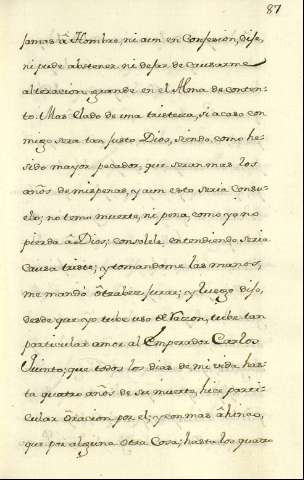 87
jamas â Hombre, ni aun en Confesion, dije,
ni pude abstener ni dejar de causarme
alteracion grande en el Alma de conten-
to. Mas llado de una tristeza, si acaso con
migo sera tan justo Dios, siendo, como he
sido mayor pecador, que seran mas los
años de mis penas, y aun esto seria consu-
elo; no temo muerte, ni pena, como yo no
pierda â Dios; consolele, entendiendo seria
causa triste; y tomandome las manos,
me mandó otra vez jurar; y luego dijo,
desde que yo tube uso de Razon, tube tan
particular amor al Emperador Carlos
Quinto; que todos los dias de mi vida has-
ta quatro años de su muerte, hice parti-
cular Oracion por el; y con mas âhinco,
que por alguna otra Cosa; hasta los quatro